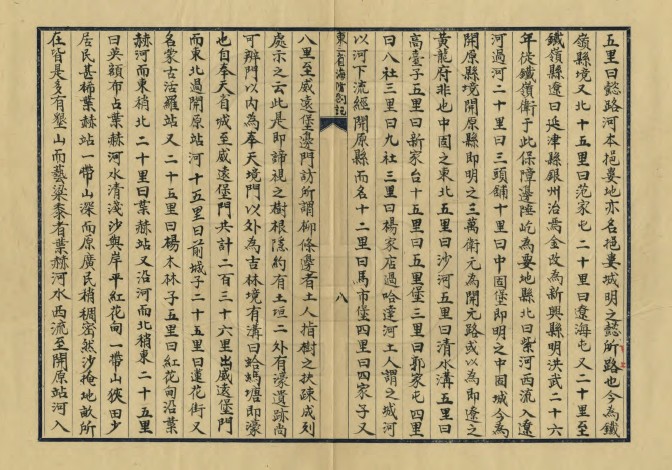 五里曰懿路河本挹婁地亦名挹婁城明之懿所路也今為鐵
嶺縣境又北十五里曰范家屯二十里曰遼海屯又二十里至
鐵嶺縣遼曰延津縣銀州治焉金改為新興縣明洪武二十六
年從鐵嶺衛于此保障邊陲屹為要地縣北曰柴河西流入遼
河過河二十里曰三頭鋪十里曰中固堡即明之中固城今為
開原縣境開原縣即明之三萬衛元為開元路或以為即遼之
黃龍府非也中固之東北五里曰沙河五里曰清水溝五里曰
高臺子五里曰新家台十五里曰五里堡三里曰郭家屯四里
曰八社三里曰九社三里曰楊家店過哈達河土人謂之城河
以河下流經開原縣而名十二里曰馬市堡四里曰四家子又
東三省海陸劄記
八
八里至威遠堡邊門訪所謂柳條邊者土人指樹之扶疎成列
處示之云此是即諦視之樹根隱約有土垣二外有濠遺跡尚
可辨門以內為奉天境門以外為吉林境有溝曰蛤螞壥即濠
也自奉天省城至威遠堡門共計二百三十六里出威遠堡門
而東北過開原站河十五里曰前城子二十五里曰蓮花街又
名蒙古活羅站又二十五里曰楊木林子五里曰紅花甸沿葉
赫河而東稍北二十里曰葉赫站又沿河而北稍東二十五里
曰英額布占葉赫河水清淺沙與岸平紅花甸一帶山狹田少
居民甚稀葉赫站一帶山深而原廣民稍稠密然沙掩地畝所
在皆是多有墾山而藝粱黍者葉赫河水西流至開原站河入